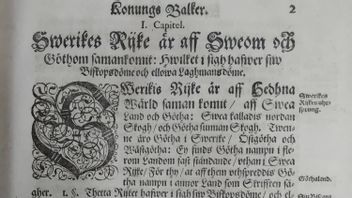 Konungs Balker. 2
I. Capitel.
Swerikes Rijke är aff Sweom och
Göthom samankomit: Hwilket i sigh hafwer siw
Biskopsdöme och ellowa Laghmansdöme.
SWerikis Rijke är af Hedhna
Wärld saman komit / aff Swea
Land och Götha: Swea kalladis nordan
Skogh / och Götha sunnan Skogh. Twen-
ne äro Götha i Swerike / Östgötha och
Wästgötha: Ey finds Götha nampn i fle-
rom Landom fast ståndande / uthan i Swea
Ryke / För thy / at aff them uthspreddis Gö-
tha nampn i annor Land som Skrifften sä-
gher. 1. §. Thetta Rijket hafwer i sigh siw Biskopsdöme / och el-
Swerikes
Rijkes uhr-
sprung.
Göthaland.